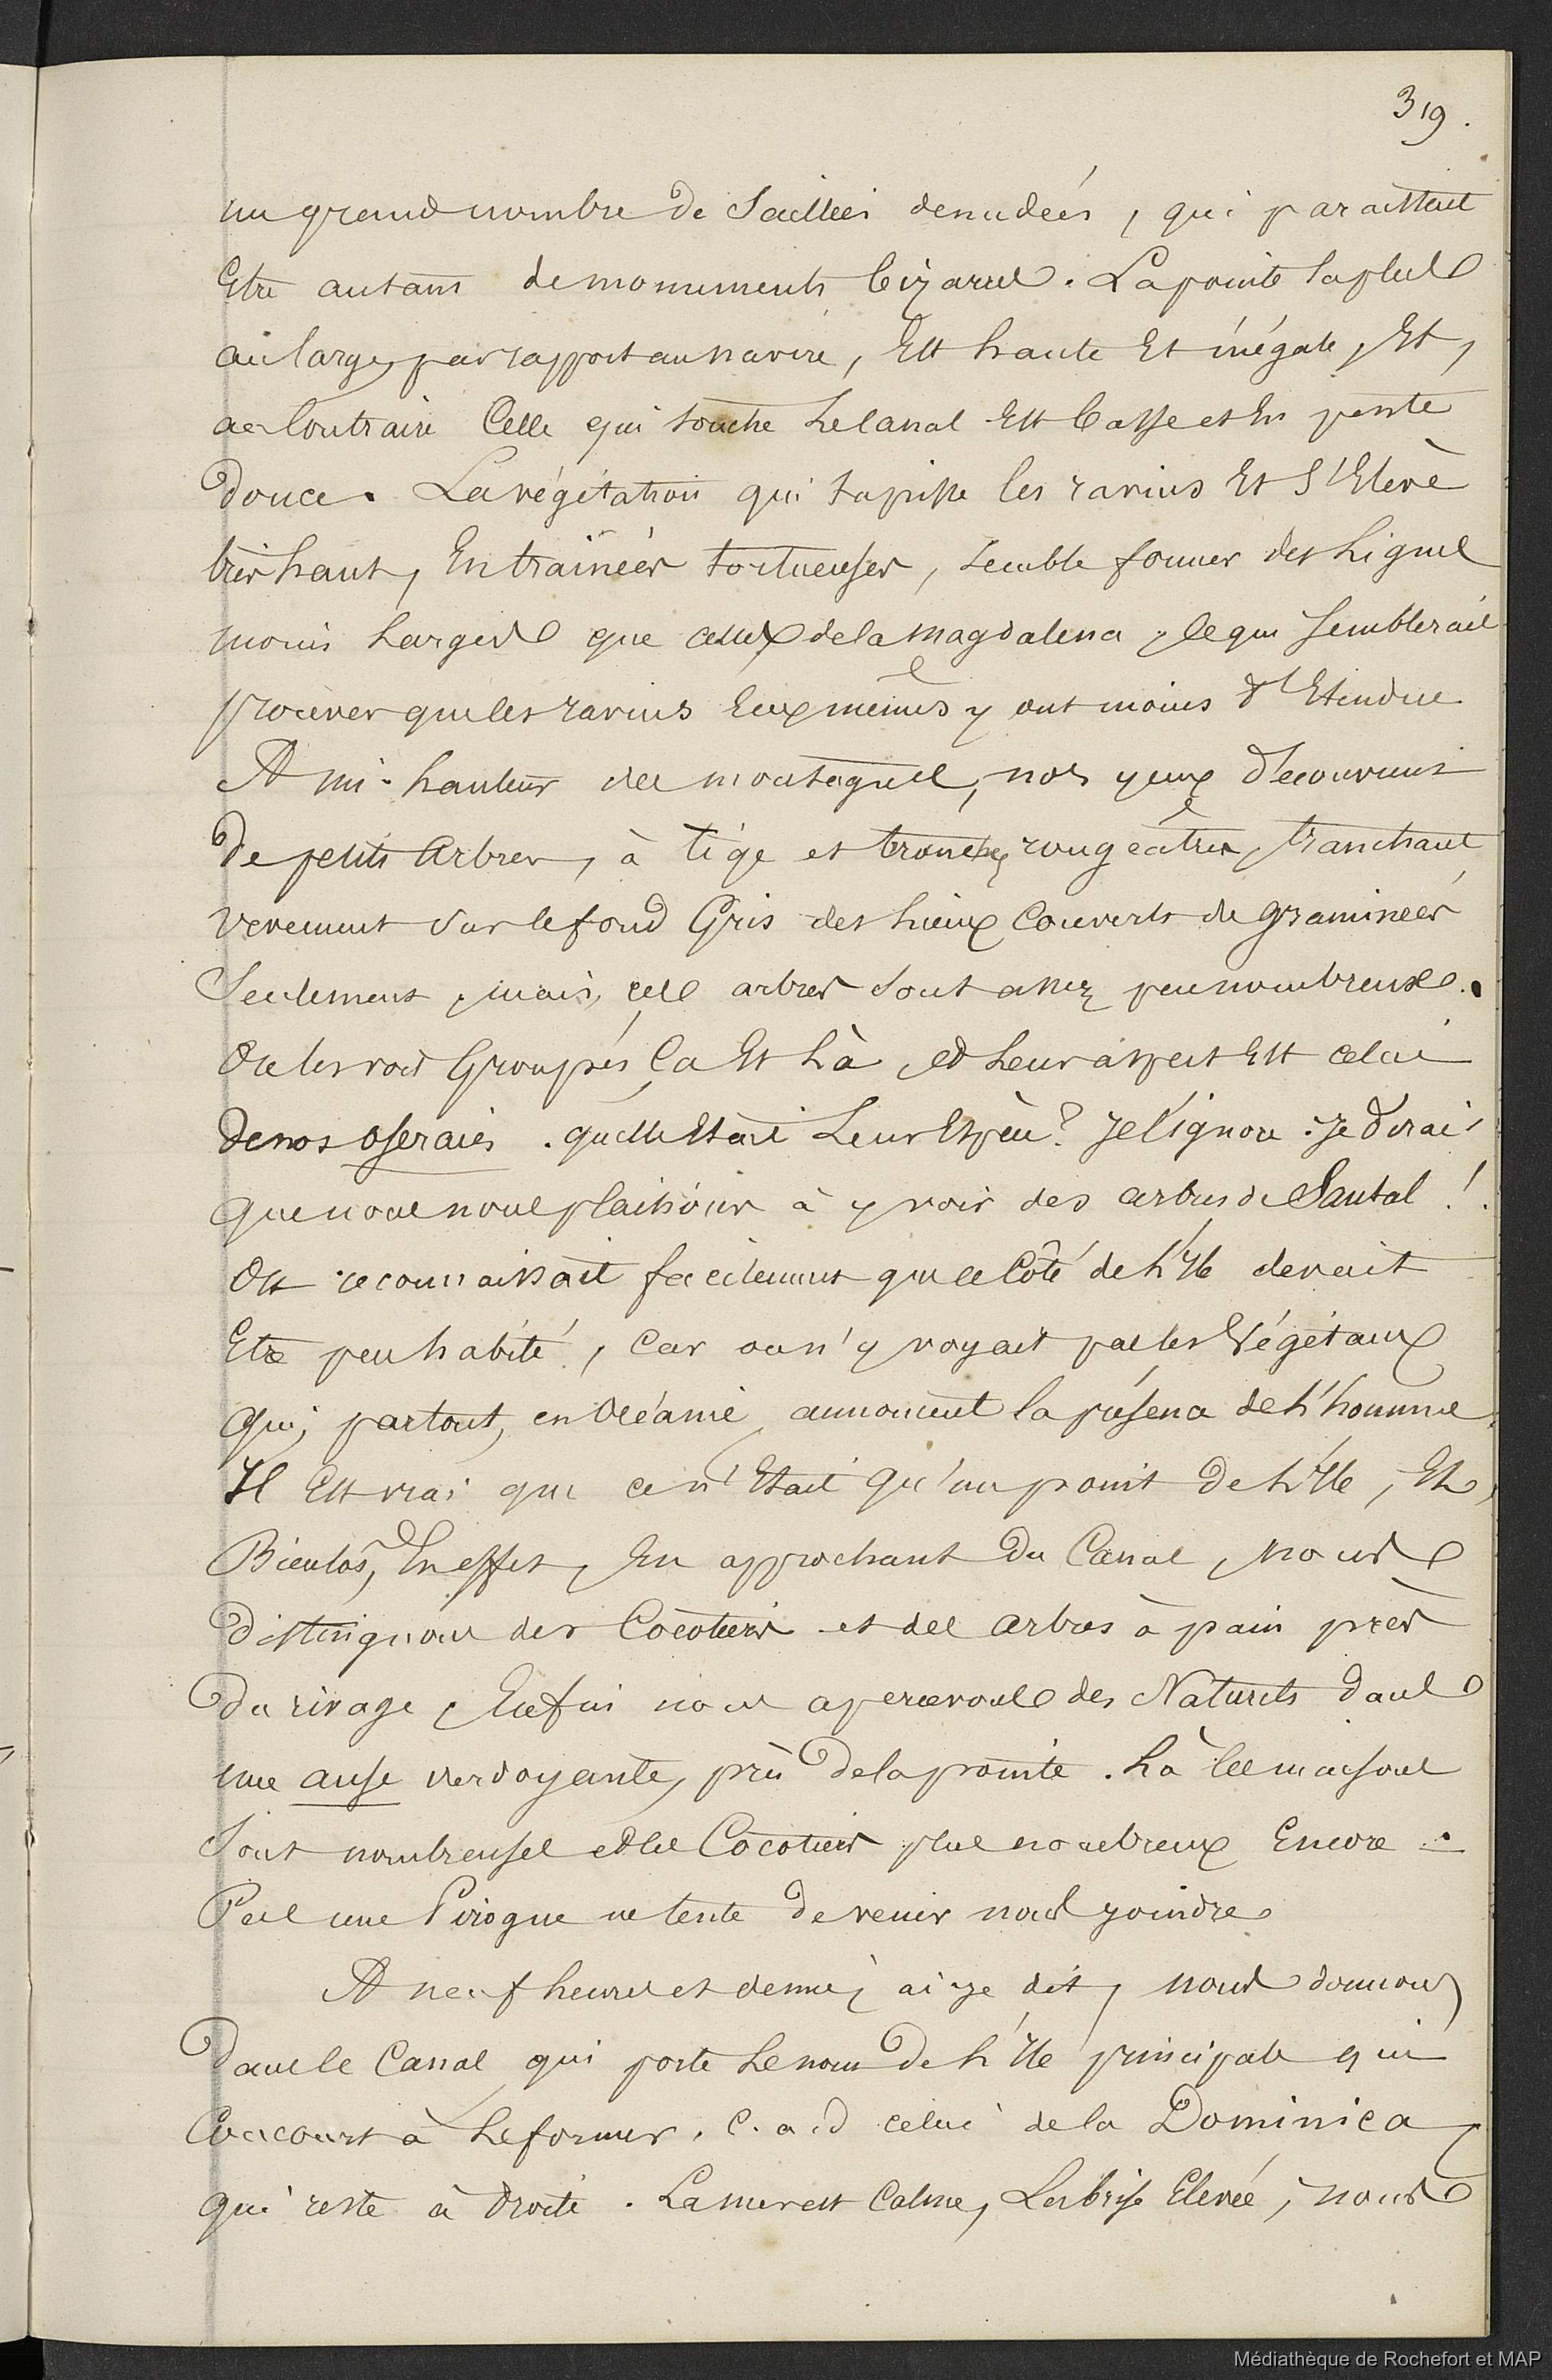 319.
un grand nombre de Saillies denudées, qui paraissait
Etre autant de monuments bizarres. La pointe la plus
au large, par rapport au navire, Est haute Et inégale, Et,
au Contraire Celle qui touche Le Canal Est basse et En pente
douce. La végétation qui tapisse les ravins Et S'Elève
très haut, En trainées tortueuses, semble former des Lignes
moins Larges que celles de la Magdalena, ce qui Semblerait
prouver que les ravins Eux mêmes y ont moins d'Etendue
A mi-hauteur des montagnes, nos yeux découvrent
De petits Arbres, à tige et tronc rougeâtre, tranchant
vivement sur le fond Gris des Lieux Couverts de graminées
Seulement, mais, ces arbres sont assez peu nombreux.
On les voit Groupés Ça Et Là, et Leur aspect Est celui
De nos oseraies. quelle Etait Leur Espèce? Je l'ignore : je dirai
que nous nous plaisions à y voir des arbres de Santal !
On reconnaissait facilement que ce Côté de L'Ile devait
Etre peu habité, Car on n'y voyait pas les Végétaux
Qui, partout, en Océanie annoncent la présence de L'homme.
Il Est vrai que ce n'Etait qu'un point De L'Ile, Et,
Bientôt, En effet, En approchant Du Canal, nous
Distinguons des Cocotiers et des Arbres à pain près
Du rivage, Enfin nous apercevons des Naturels dans
une anse verdoyante, près De la pointe. Là les maisons
Sont nombreuses et les Cocotiers plus nombreux Encore.
Pas une Pirogue ne tente De venir nous joindre
A neuf heures et demie, ai-je dit, nous donnons
Dans le Canal qui porte Le nom De L'Ile principale qui
Concourt à Le former, C. a. d celui de la Dominica,
qui reste à Droite. La mer est Calme, La brise Elevée, nous
Médiathèque de Rochefort et MAP